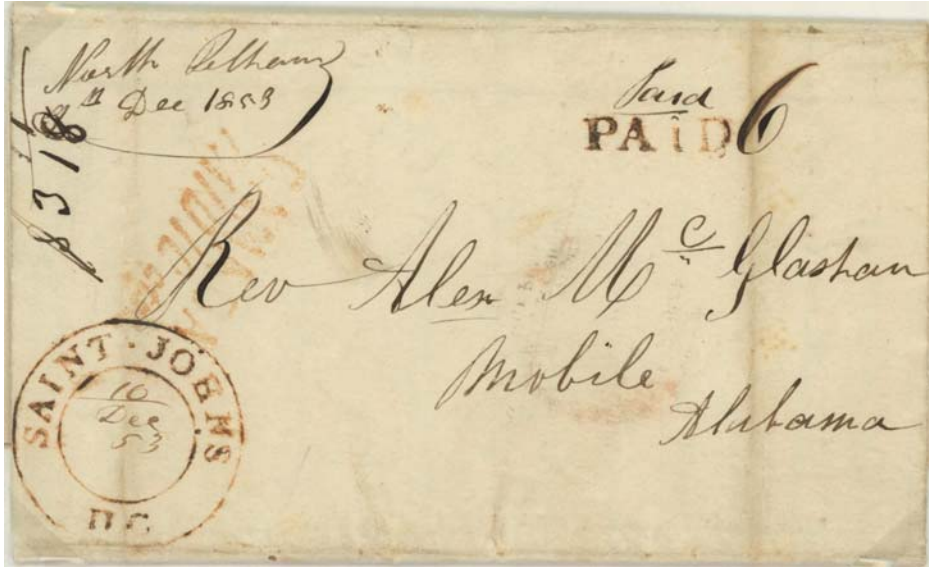 North Pelham
9th Dec 1853
Paid
PAID 6
Rev Alex Mc Glashan
Mobile
Alabama
SAINT·JOHNS
10
Dec
53
U.C.